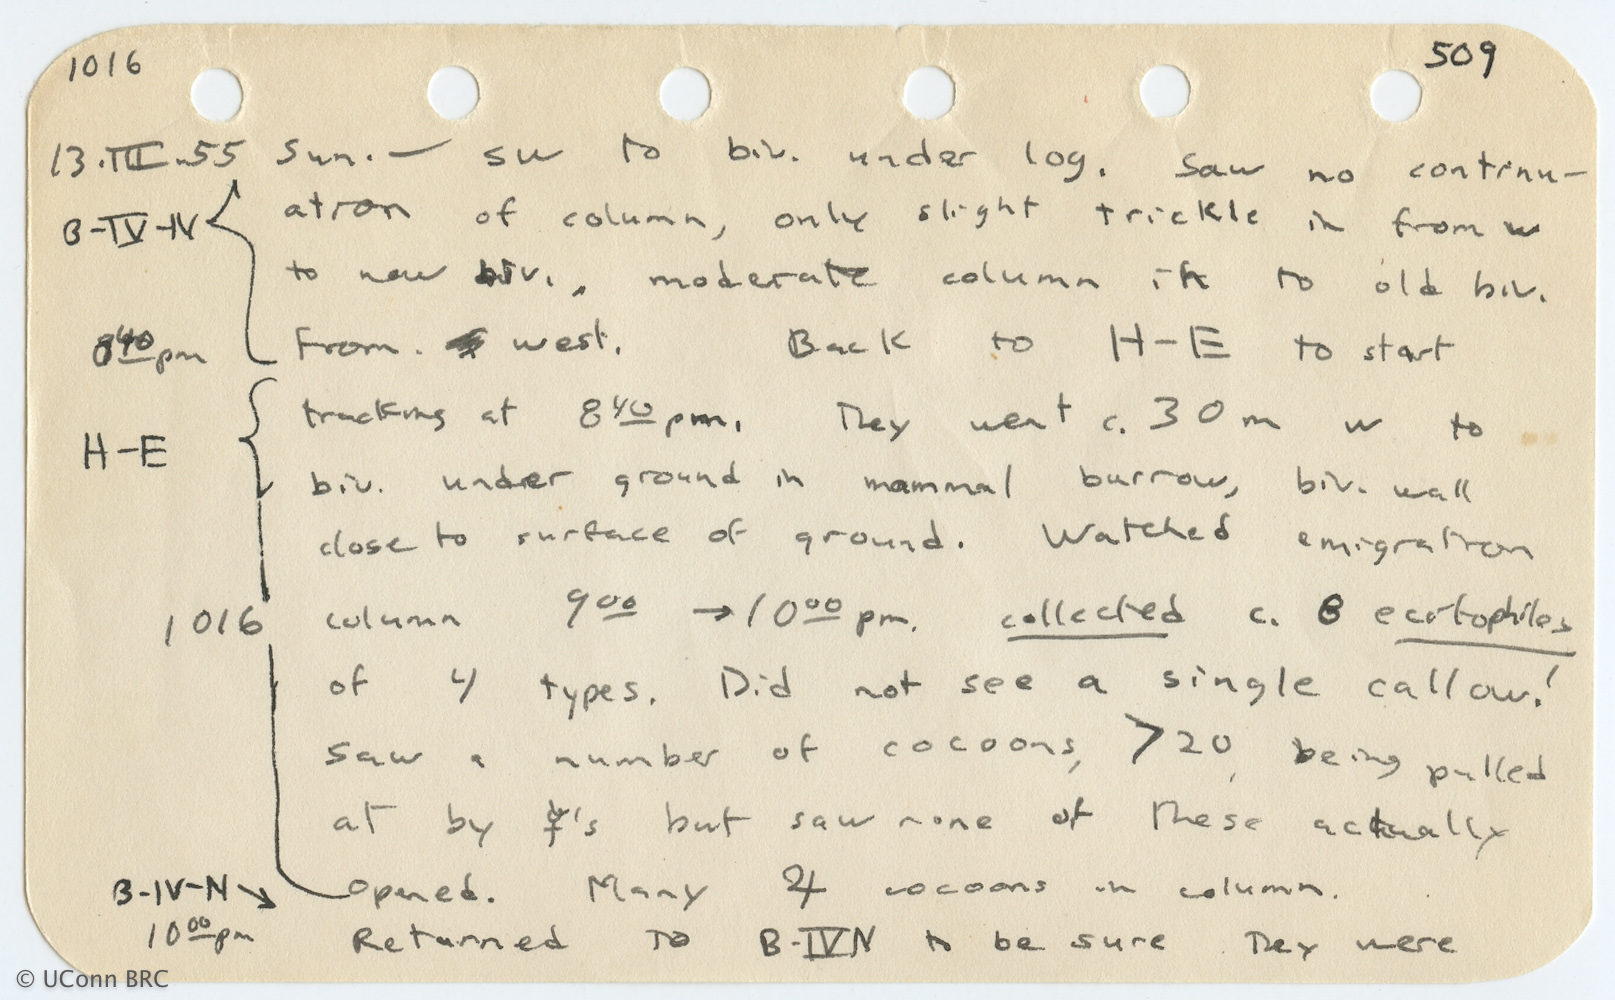 1016
509
13.III.55 Sun. — SW to biv. under log. Saw no continu-
B-IV-N ation of column, only slight trickle in from W
to new biv., moderate column in to old biv.
8⁴⁰ pm From west. Back to H-E to start
tracking at 8⁴⁰ pm. They went c. 30 m W to
H-E biv. under ground in mammal burrow, biv. wall
close to surface of ground. Watched emigration
1016 column 9⁰⁰ → 10⁰⁰ pm. collected c. 8 ecitophiles
of 4 types. Did not see a single callow!
Saw a number of cocoons, >20, being pulled
at by ☿'s but saw none of these actually
B-IV-N → opened. Many ♃ cocoons in column.
10⁰⁰ pm Returned to B-IV N to be sure they were
© UConn BRC